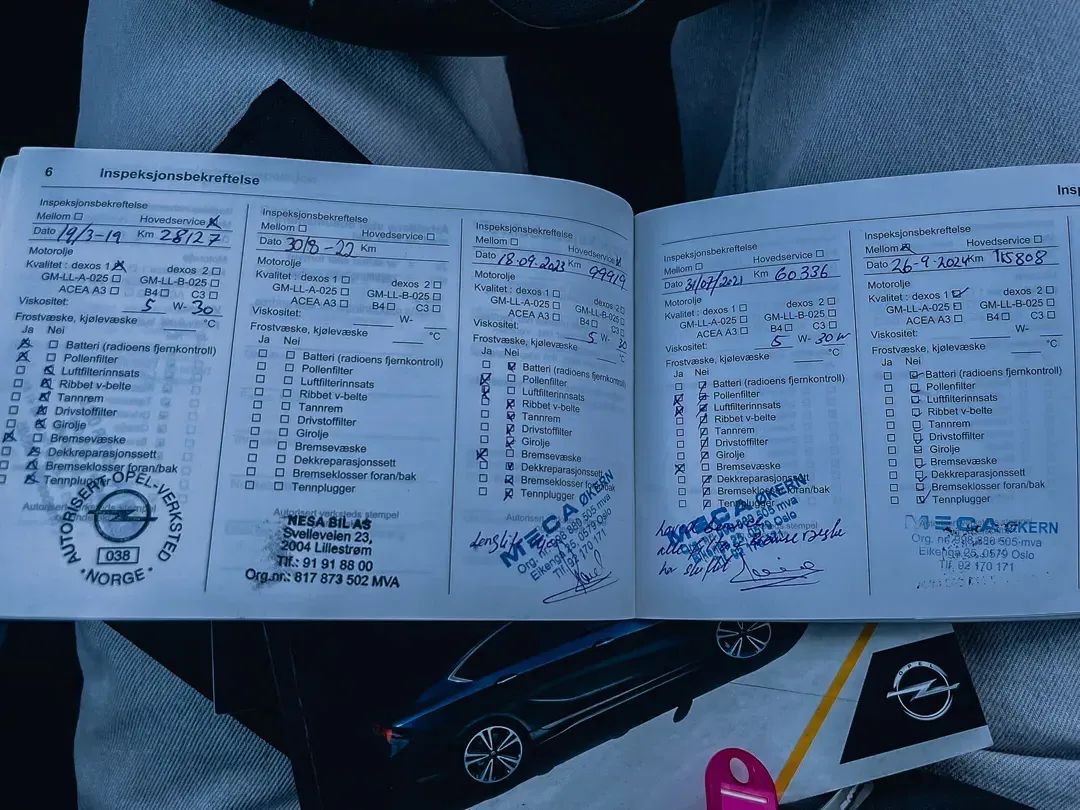 6 Inspeksjonsbekreftelse
Inspeksjonsbekreftelse
Mellom Hovedservice
Dato 19/3-19 Km 28127
Motorolje
Kvalitet : dexos 1 dexos 2
GM-LL-A-025 GM-LL-B-025
ACEA A3 B4 C3
Viskositet: 5 W- 30
Frostvæske, kjølevæske °C
Ja Nei
Batteri (radioens fjernkontroll)
Pollenfilter
Luftfilterinnsats
Ribbet v-belte
Tannrem
Drivstoffilter
Girolje
Bremsevæske
Dekkreparasjonssett
Bremseklosser foran/bak
Tennplugger
AUTORISERT OPEL-VERKSTED
038
· NORGE ·
Inspeksjonsbekreftelse
Mellom Hovedservice
Dato 30/8-22 Km
Motorolje
Kvalitet : dexos 1 dexos 2
GM-LL-A-025 GM-LL-B-025
ACEA A3 B4 C3
Viskositet: W-
Frostvæske, kjølevæske °C
Ja Nei
Batteri (radioens fjernkontroll)
Pollenfilter
Luftfilterinnsats
Ribbet v-belte
Tannrem
Drivstoffilter
Girolje
Bremsevæske
Dekkreparasjonssett
Bremseklosser foran/bak
Tennplugger
NESA BIL AS
Svelleveien 23,
2004 Lillestrøm
Tlf.: 91 91 88 00
Org.nr.: 817 873 502 MVA
Inspeksjonsbekreftelse
Mellom Hovedservice
Dato 18-09-2023 Km 99919
Motorolje
Kvalitet : dexos 1 dexos 2
GM-LL-A-025 GM-LL-B-025
ACEA A3 B4 C3
Viskositet: 5 W- 30
Frostvæske, kjølevæske °C
Ja Nei
Batteri (radioens fjernkontroll)
Pollenfilter
Luftfilterinnsats
Ribbet v-belte
Tannrem
Drivstoffilter
Girolje
Bremsevæske
Dekkreparasjonssett
Bremseklosser foran/bak
Tennplugger
MEGA ØKERN
Eikenga 25, 0579 Oslo
Tlf, 92 170 171
Insp
Inspeksjonsbekreftelse
Mellom Hovedservice
Dato 31/07/2021 Km 60336
Motorolje
Kvalitet : dexos 1 dexos 2
GM-LL-A-025 GM-LL-B-025
ACEA A3 B4 C3
Viskositet: 5 W- 30W
Frostvæske, kjølevæske °C
Ja Nei
Batteri (radioens fjernkontroll)
Pollenfilter
Luftfilterinnsats
Ribbet v-belte
Tannrem
Drivstoffilter
Girolje
Bremsevæske
Dekkreparasjonssett
Bremseklosser foran/bak
Tennplugger
MEGA ØKERN
Inspeksjonsbekreftelse
Mellom Hovedservice
Dato 26-9-2024 Km 115808
Motorolje
Kvalitet : dexos 1 dexos 2
GM-LL-A-025 GM-LL-B-025
ACEA A3 B4 C3
Viskositet: W-
Frostvæske, kjølevæske °C
Ja Nei
Batteri (radioens fjernkontroll)
Pollenfilter
Luftfilterinnsats
Ribbet v-belte
Tannrem
Drivstoffilter
Girolje
Bremsevæske
Dekkreparasjonssett
Bremseklosser foran/bak
Tennplugger
MEGA ØKERN
Eikenga 25, 0579 Oslo
Tlf, 92 170 171
OPEL